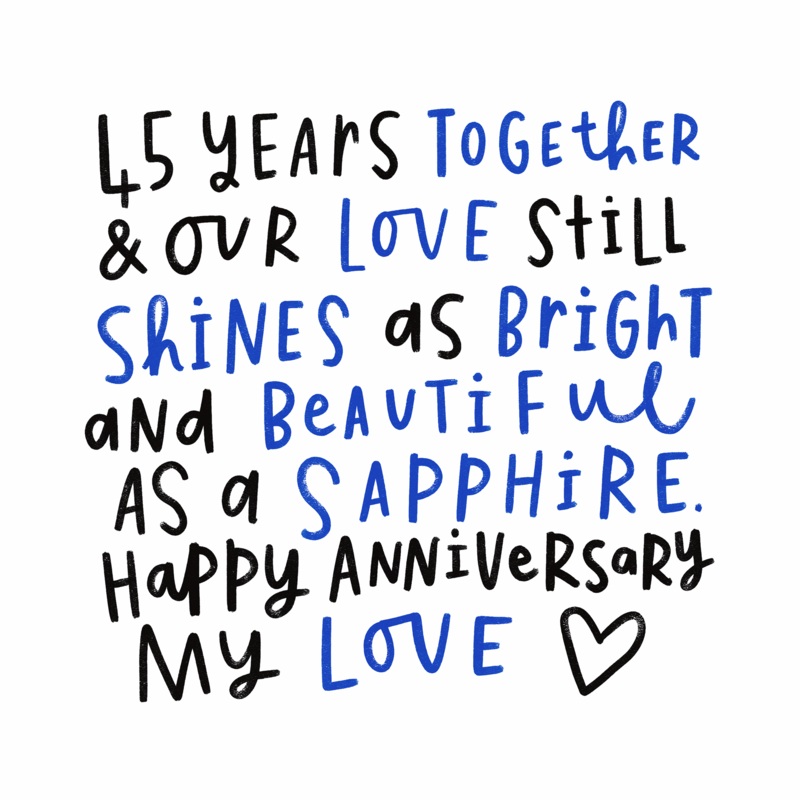 45 YEARS TOGETHER
& OUR LOVE STILL
SHINES as BRIGHT
and BEAUTIFUL
AS a SAPPHIRE.
HAPPY ANNIVERSARY
MY LOVE